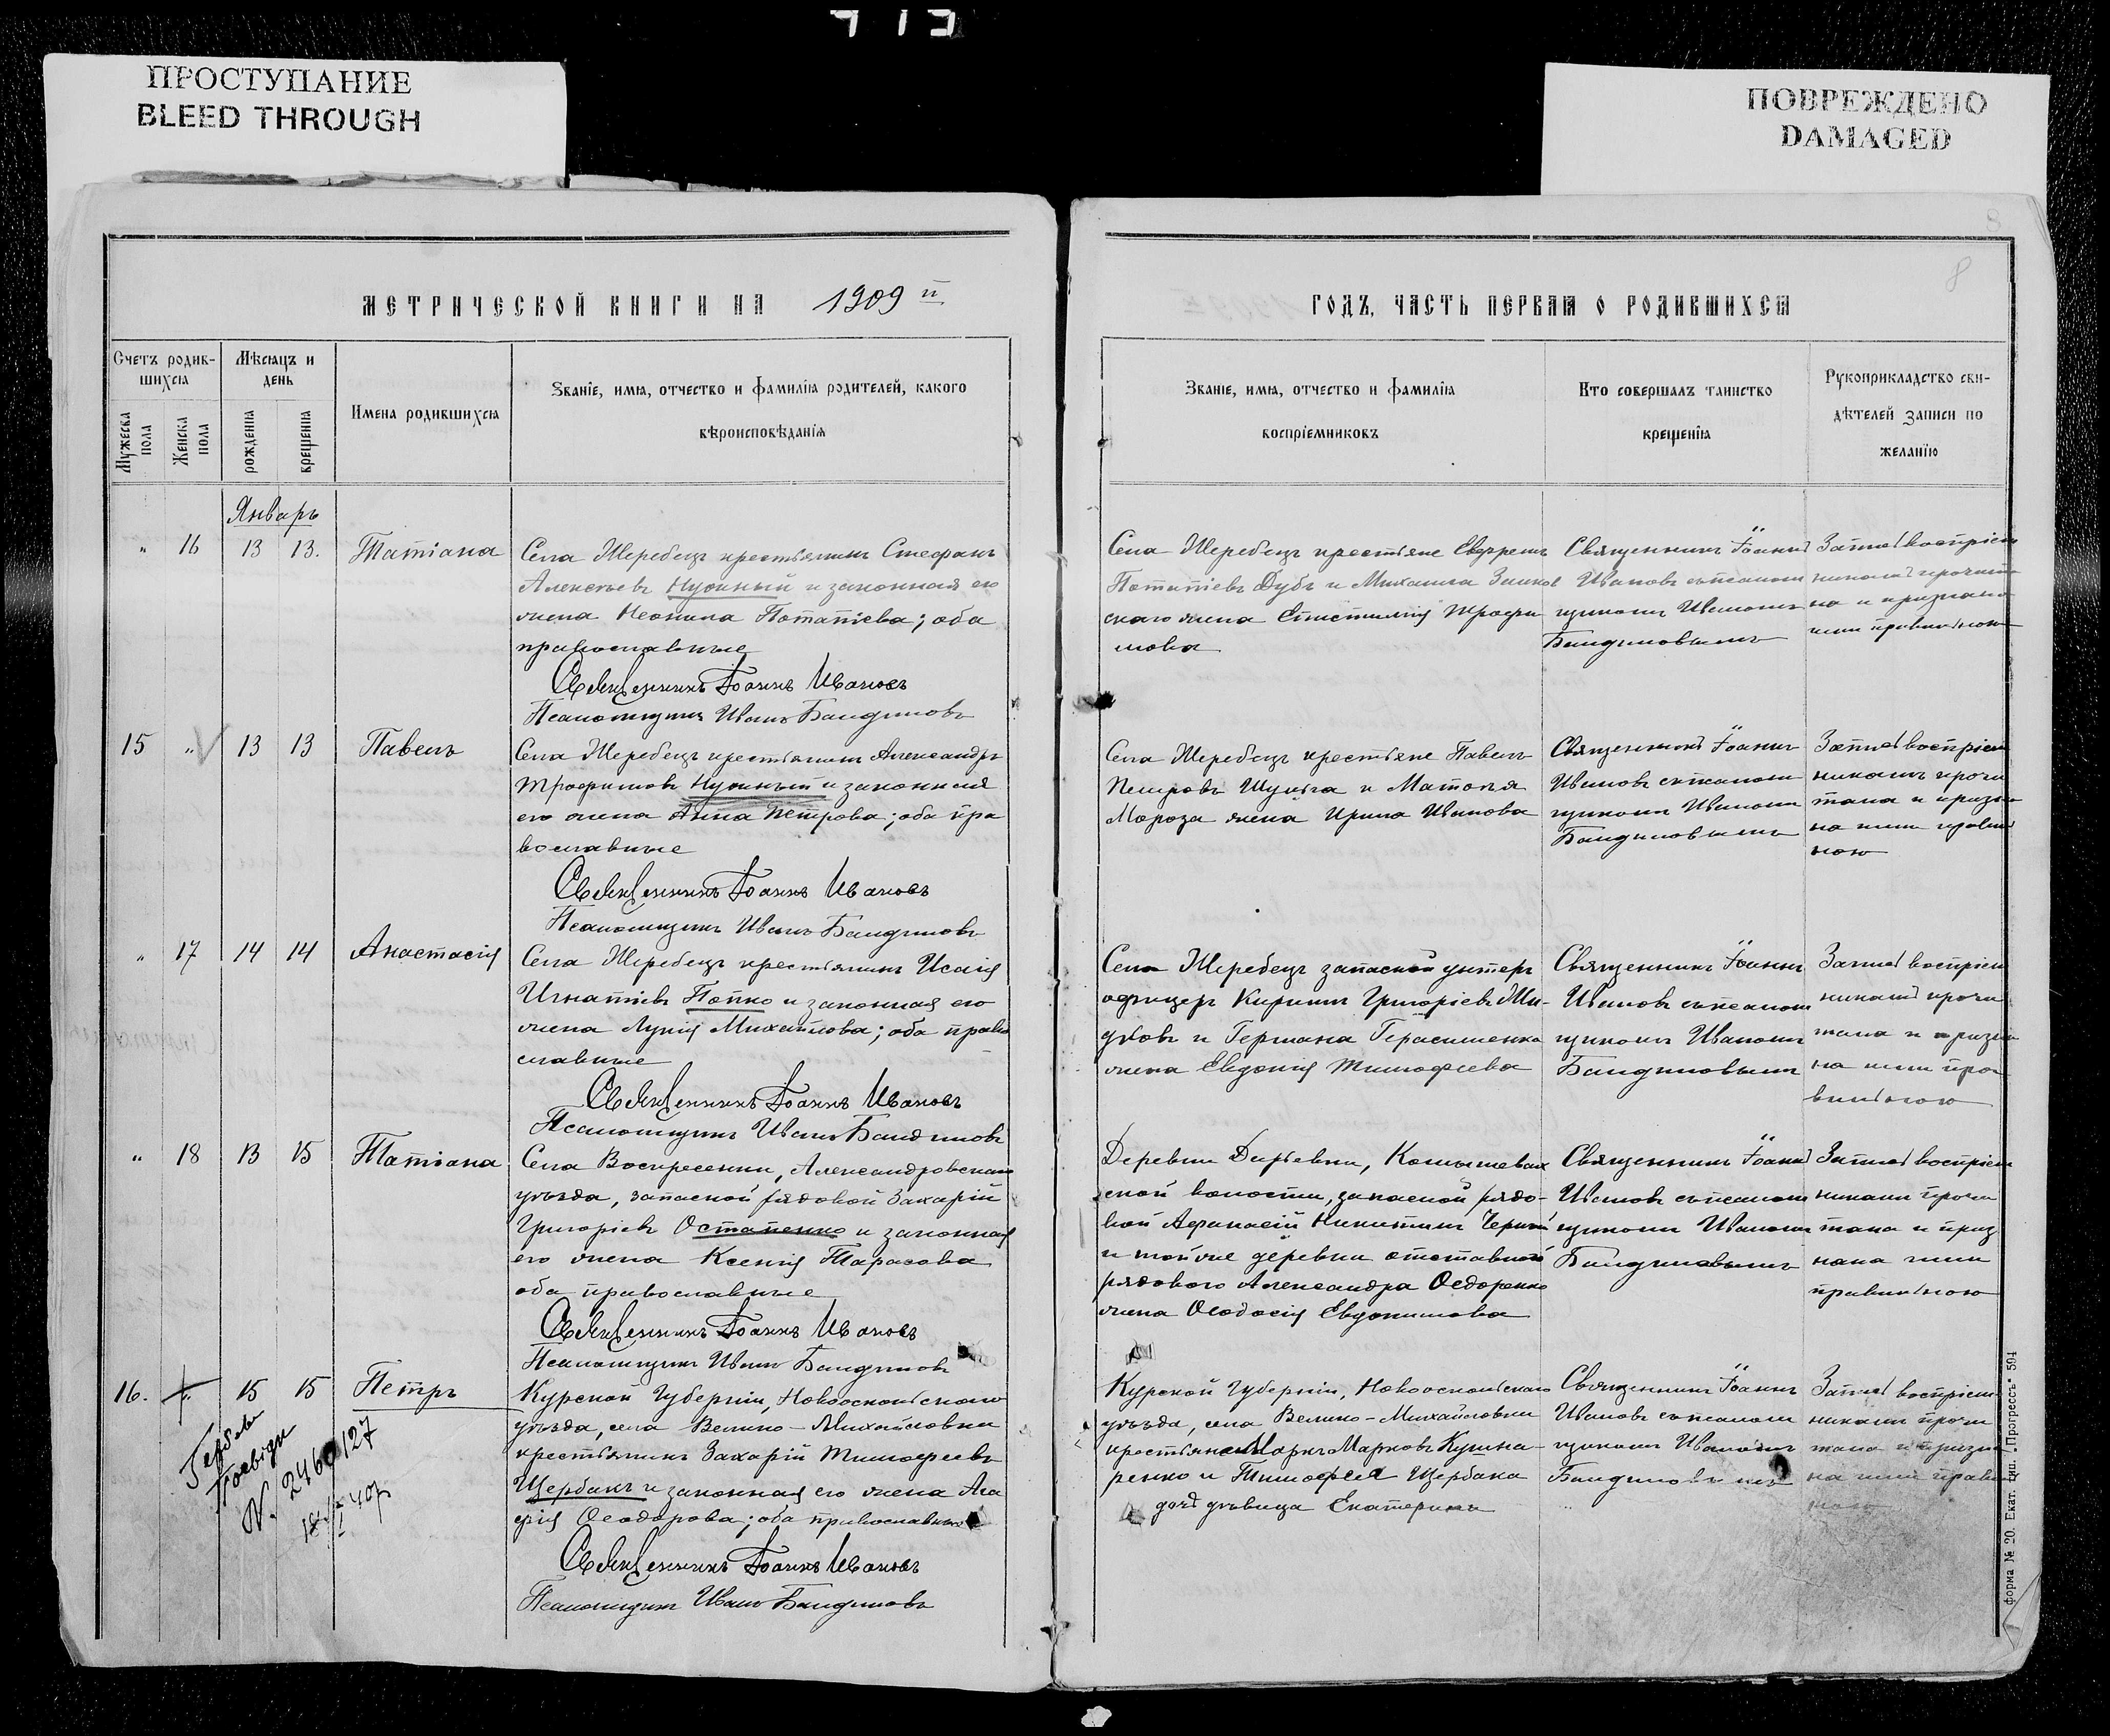 ПРОСТУПАНИЕ
BLEED THROUGH
ПОВРЕЖДЕНО
DAMAGED
8
МЕТРИЧЕСКОЙ КНИГИ НА 1909 й
ГОДЪ, ЧАСТЬ ПЕРВАЯ О РОДИВШИХСЯ
Счетъ родив-
шихся
Мужеска пола
Женска пола
Мѣсяцъ и
день
рожденія
крещенія
Имена родившихся
Званіе, имя, отчество и фамилія родителей, какого
вѣроисповѣданія
Званіе, имя, отчество и фамилія
воспріемниковъ
Кто совершалъ таинство
крещенія
Рукоприкладство сви-
дѣтелей записи по
желанію
Январь
" 16 13 13. Татіана
Села Жеребецъ крестьянинъ Стефанъ
Алексѣевъ Нужный и законная его
жена Неонила Потапіева; оба
православные
Священникъ Іоаннъ Ивановъ
Псаломщикъ Иванъ
Села Жеребецъ крестьяне
Потапіевъ Дубъ и Михаила
скаго жена Епистимія Трофи
мова
Священникъ Іоаннъ
Ивановъ съ псалом
щикомъ Иваномъ
Запись воспріем
никамъ прочита
на и признана
ими правильною
15 " 13 13 Павелъ
Села Жеребецъ крестьянинъ Александръ
Трофимовъ Нужный и законная
его жена Анна Петрова; оба пра
вославные
Священникъ Іоаннъ Ивановъ
Псаломщикъ Иванъ
Села Жеребецъ крестьяне Павелъ
Петровъ Шульга и
Мороза жена Ирина Иванова
Священникъ Іоаннъ
Ивановъ съ псалом
щикомъ Иваномъ
Запись воспріем
никамъ прочи
тана и призна
на ими правиль
ною
" 17 14 14 Анастасія
Села Жеребецъ крестьянинъ Исаія
Игнатіевъ Попко и законная его
жена Лукія Михайлова; оба право
славные
Священникъ Іоаннъ Ивановъ
Псаломщикъ Иванъ
Села Жеребецъ запасной унтеръ
офицеръ Кириллъ Григоріевъ
и Германа Герасименка
жена Евдокія Тимофеева
Священникъ Іоаннъ
Ивановъ съ псалом
щикомъ Иваномъ
Запись воспріем
никамъ прочи
тана и призна
на ими пра
вильною
" 18 13 15 Татіана
Села Воскресенки, Александровскаго
уѣзда, запасной рядовой Захарій
Григоріевъ Остапенко и законная
его жена Ксенія Тарасова
оба православные
Священникъ Іоаннъ Ивановъ
Псаломщикъ Иванъ
Деревни
ской волости, запасной рядо-
вой Афанасій Никитинъ
и той же деревни отставного
рядового Александра Ѳедоренко
жена Ѳеодосія Евдокимова
Священникъ Іоаннъ
Ивановъ съ псалом
щикомъ Иваномъ
Запись воспріем
никами прочи
тана и приз
нана ими
правильною
16. " 15 15 Петръ
№ 2460127
Курской Губерніи, Новооскольскаго
уѣзда, села Велико-Михайловки
крестьянинъ Захарій Тимофеевъ
Щербакъ и законная его жена Ага
фія Ѳеодорова; оба православные
Священникъ Іоаннъ Ивановъ
Псаломщикъ Иванъ
Курской Губерніи, Новооскольскаго
уѣзда, села Велико-Михайловки
крестьяне Марковъ
ренко и Тимофея Щербака
дочь дѣвица Екатерина
Священникъ Іоаннъ
Ивановъ съ псалом
щикомъ Иваномъ
Запись воспріем
никами прочи
тана и призна
на ими правиль
ною
Форма № 20. Екат. тип. „Прогрессъ" 594